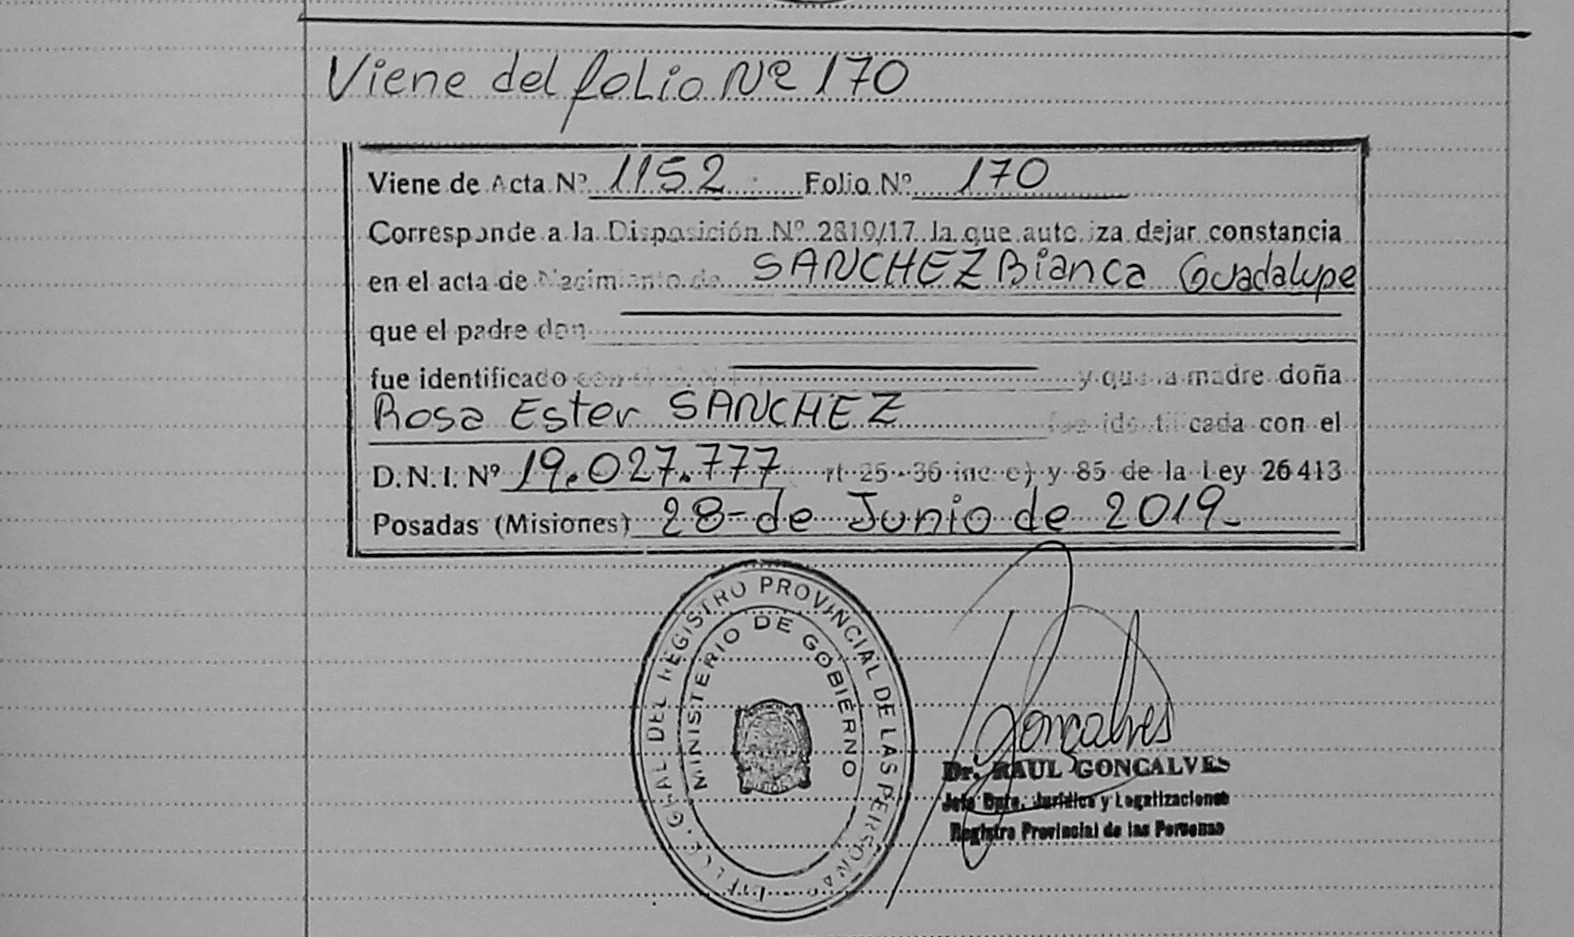 Viene del folio Nº 170
Viene de Acta Nº 1152 Folio Nº 170
Corresponde a la Disposición Nº 2819/17 la que auto iza dejar constancia
en el acta de Nacimiento de SANCHEZ Bianca Guadalupe
que el padre don
fue identificado y que la madre doña
Rosa Ester SANCHEZ fue identificada con el
D.N.I. Nº 19.027.777 rt 25-36 inc c) y 85 de la Ley 26413
Posadas (Misiones) 28- de Junio de 2019-
GRAL DEL REGISTRO PROVINCIAL DE LAS PERSONAS
MINISTERIO DE GOBIERNO
Goncalves
Dr. RAUL GONCALVES
Jefe Dpto. Jurídico y Legalizaciones
Registro Provincial de las Personas